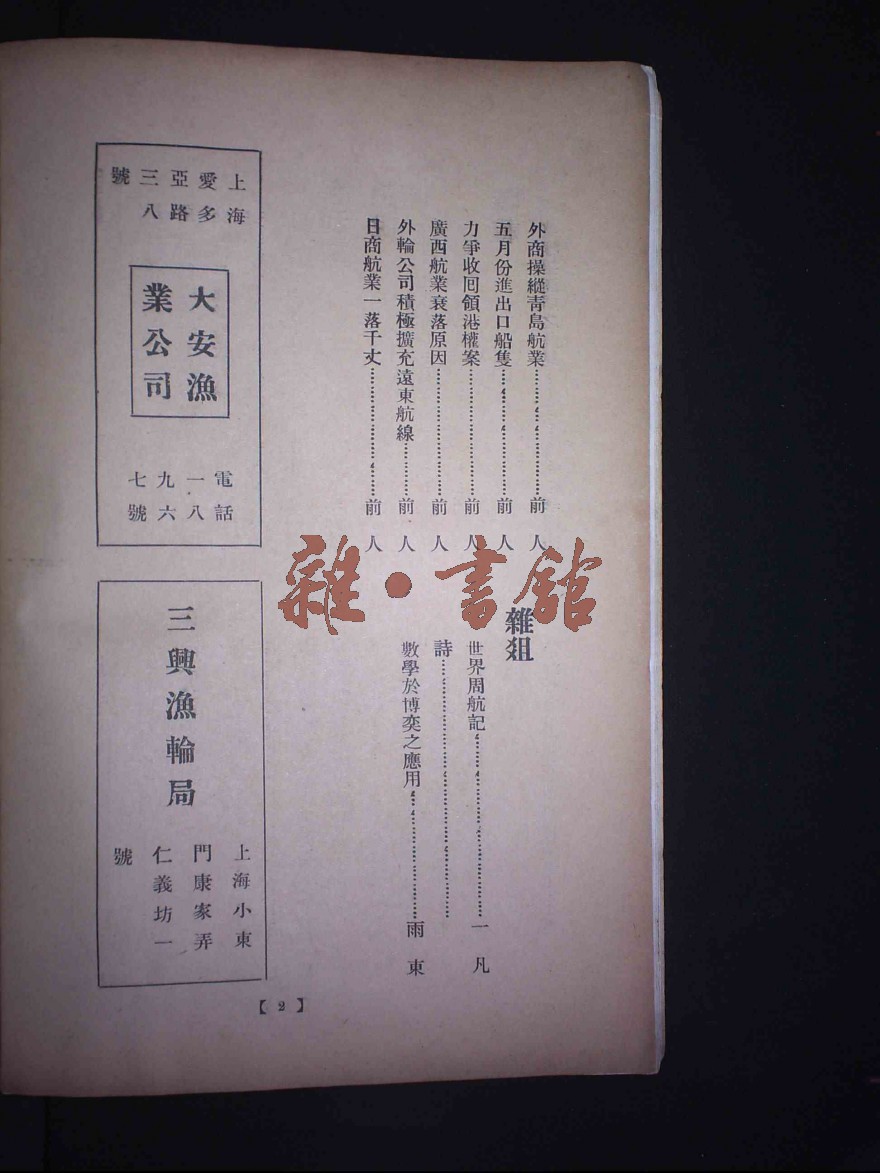 外商操縱青島航業……………………前人
五月份進出口船隻……………………前人
力爭收回領港權案……………………前人
廣西航業衰落原因……………………前人
外輪公司積極擴充遠東航線…………前人
日商航業一落千丈……………………前人
雜俎
世界周航記……………………………一凡
詩…………………………………………
數學於博奕之應用……………………雨東
上海
愛多
亞路
三八
號
大安漁
業公司
電話
一八
九六
七號
三興漁輪局
上海小東
門康家弄
仁義坊一
號
【2】
雜·書館